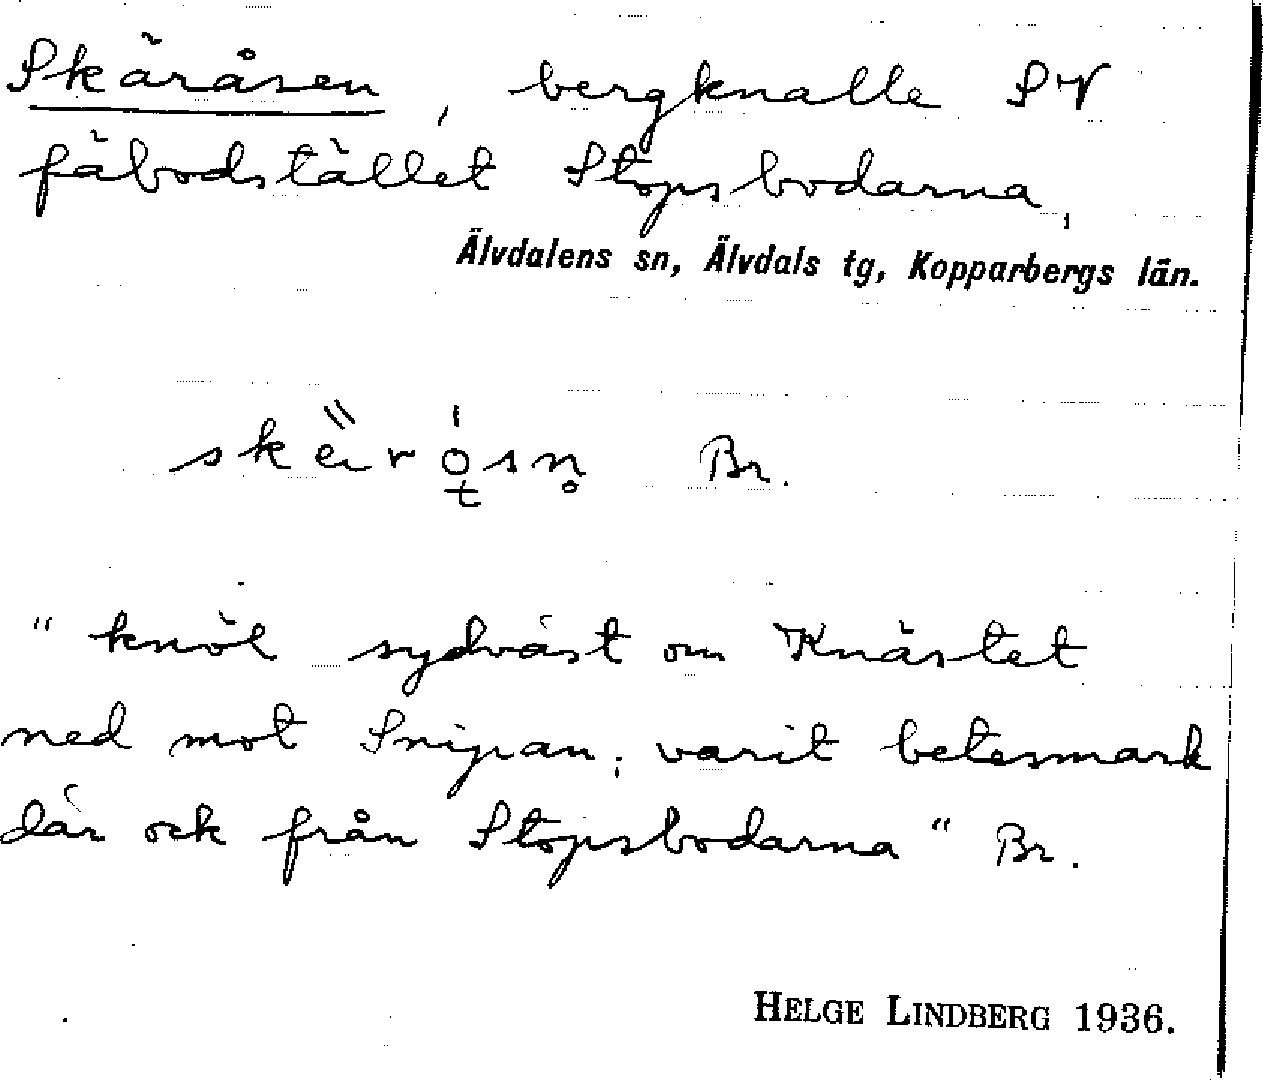 Skäråsen, bergknalle SV
fäbodstället Stopsbodarna,
Älvdalens sn, Älvdals tg, Kopparbergs län.
Br.
"knöl sydväst om Knästet
ned mot Snipan; varit betesmark
där ock från Stopsbodarna" Br.
HELGE LINDBERG 1936.